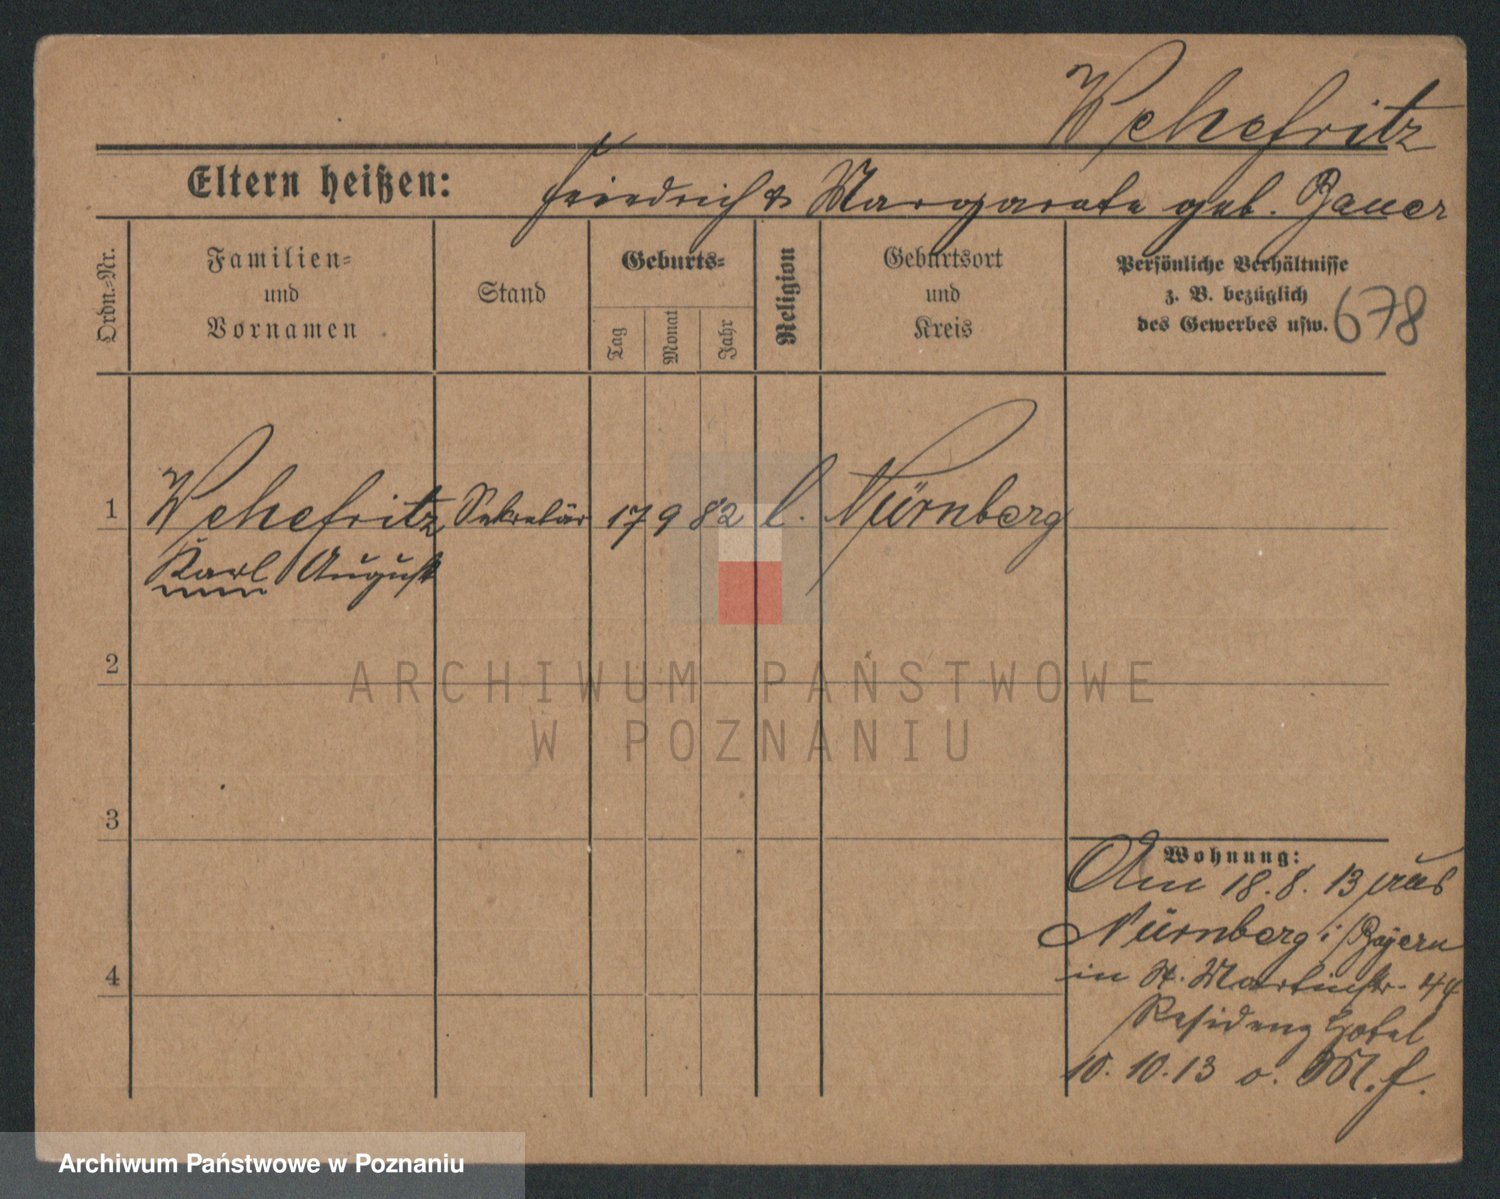 Wehefritz
Eltern heißen: Friedrich & Margarete geb. Bauer
Ordn.-Nr.
Familien-
und
Vornamen
Stand
Geburts-
Tag
Monat
Jahr
Religion
Geburtsort
und
Kreis
Persönliche Verhältnisse
z. B. bezüglich
des Gewerbes usw.
678
1 Wehefritz Sekretär 17 9 82 l. Nürnberg
Karl August
2
ARCHIWUM PAŃSTWOWE
W POZNANIU
3
4
Wohnung:
Am 18.8.13 aus
Nürnberg i/Bayern
in St. Martinstr. 44
Residenz Hotel
10.10.13 o. M. f.
Archiwum Państwowe w Poznaniu